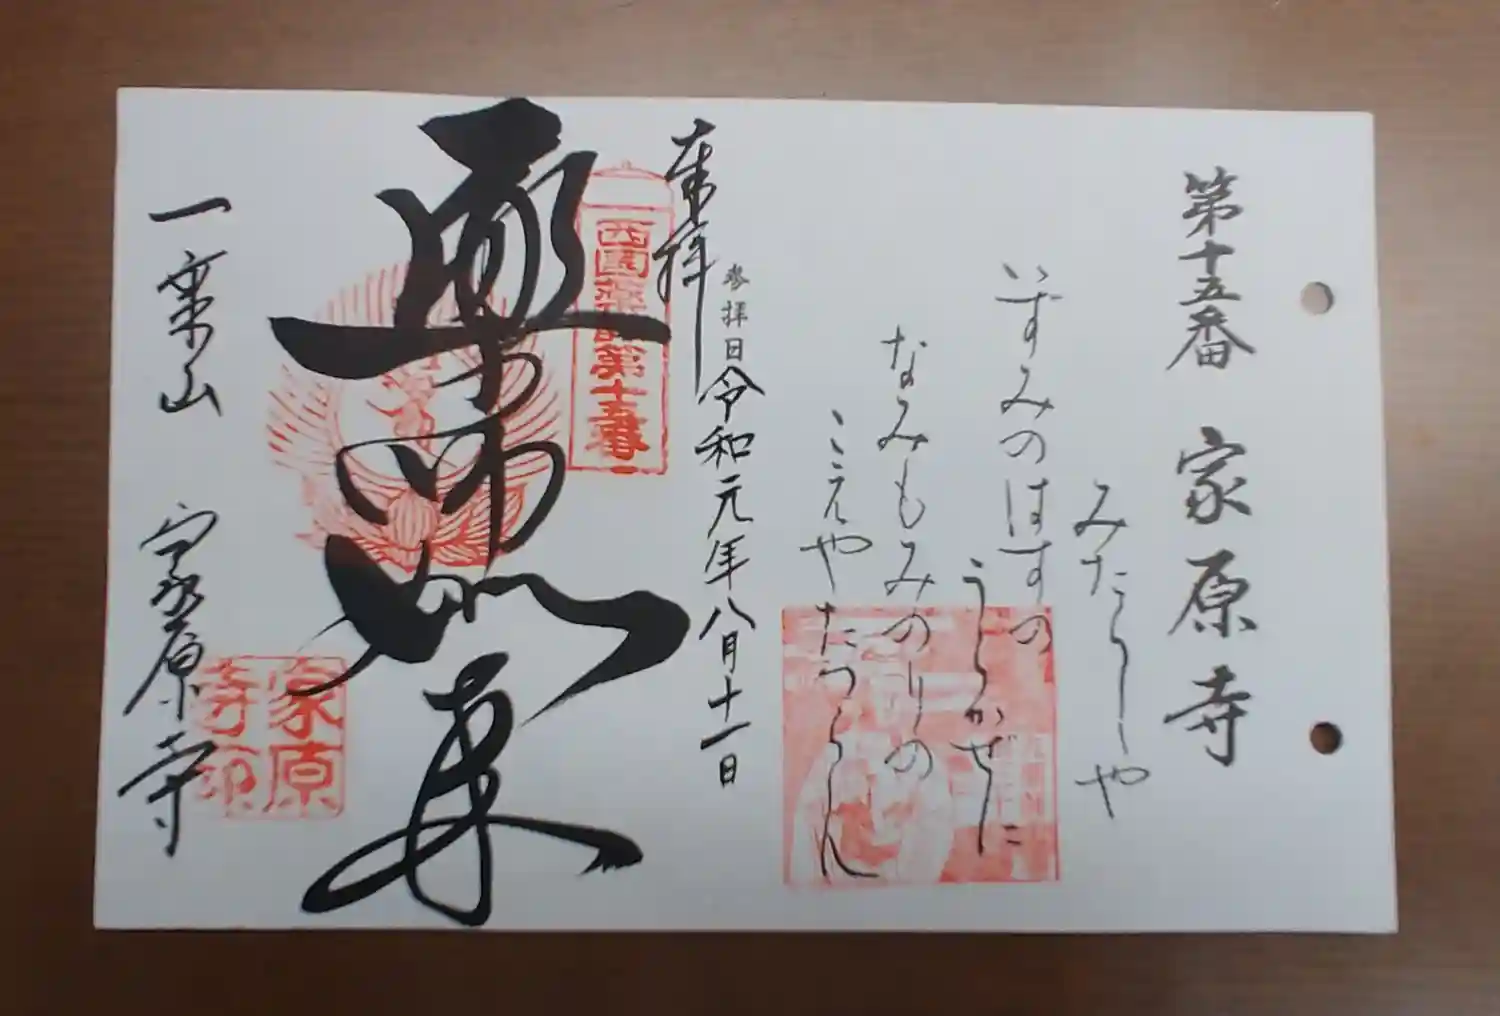 第十五番 家原寺
みたらしや
いずみのはすの
うらかぜに
なみもみのりの
こゝえやたつらん
参拝日令和元年八月十一日
奉拝
西国薬師第十五番
薬師如来
家原
寺印
一乗山 家原寺